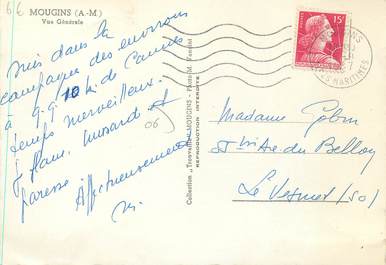 6€
MOUGINS (A.-M)
Vue Générale
suis dans la
campagne des environs
à qq 10 k de Cannes
temps merveilleux.
je flane, musard et
paresse Affectueusement
06
Collection "Trouvailles" MOUGINS - Photo M. Verdini
REPRODUCTION INTERDITE
15F
ALPES MARITIMES
Madame Gobin
du Belloy
Le Vesinet (SO)